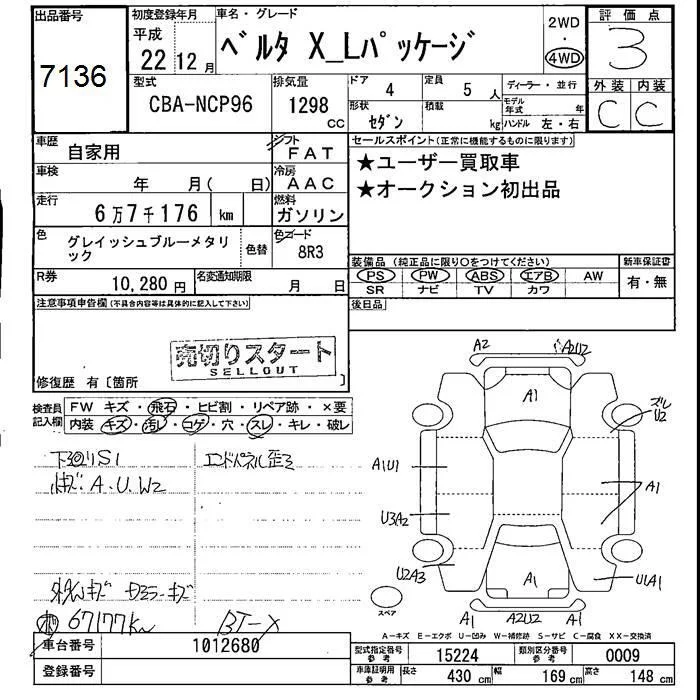 出品番号
7136
初度登録年月
平成
22 12 月
車名・グレード
ベルタ X_Lパッケージ
2WD
・
4WD
評価点
3
外装 内装
C C
型式
CBA-NCP96
排気量
1298
CC
ドア
4
定員
5 人
ディーラー・並行
形状
セダン
積載
kg
モデル年式
年
ハンドル 左・右
車歴
自家用
シフト
FAT
車検
年 月( 日)
冷房
AAC
走行
6万7千176 km
燃料
ガソリン
色
グレイッシュブルーメタリック
色替
色コード
8R3
R券
10,280 円
名変通知期限
月 日
セールスポイント(正常に機能するものに限ります)
★ユーザー買取車
★オークション初出品
装備品(純正品に限り○をつけてください)
新車保証書
PS PW ABS エアB AW
SR ナビ TV カワ
有・無
後日品
注意事項申告欄(不具合内容等は具体的に記入して下さい)
売切りスタート
SELLOUT
修復歴 有〔箇所 〕
検査員記入欄
FW キズ・飛石・ヒビ割・リペア跡・×要
内装 キズ・汚レ・コゲ・穴・スレ・キレ・破レ
下廻りS1 エンドパネル歪ミ
A.U.W2
キズ
67177km
BT-X
A2 A2U2
A1
ズレ
U2
A1U1
A1
U3A2
U2A3
A1
U1A1
スペア
A1 A2U2 A1
A-キズ E-エクボ U-凹み W-補修跡 S-サビ C-腐食 XX-交換済
車台番号
1012680
登録番号
型式指定番号
参考
15224
類別区分番号
参考
0009
車庫証明用
参考
長さ
430 cm
幅
169 cm
高さ
148 cm